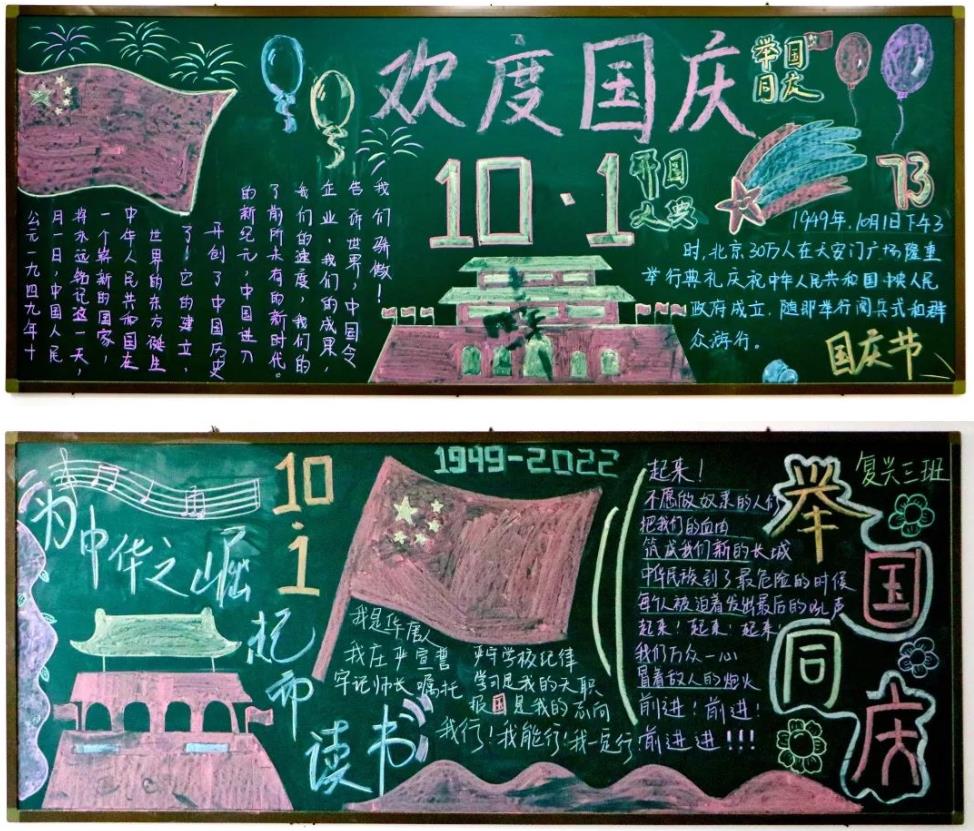 欢度国庆
举国
同庆
10·1
开国
大典
73
公元一九四九年十
月一日，中国人民
将永远铭记这一天，
一个崭新的国家，
中华人民共和国在
世界的东方诞生
了！它的建立，
开创了中国历史
的新纪元，中国进入
了前所未有的新时代。
我们的速度，我们的
企业，我们的成果，
告诉世界，中国令
我们骄傲！
1949年，10月1日下午3
时，北京30万人在天安门广场隆重
举行典礼庆祝中华人民共和国中央人民
政府成立．随即举行阅兵式和群
众游行。
国庆节
为中华之崛
起而
读书
10·1
1949-2022
我是华展人
我在此宣誓
牢记师长嘱托
严守学校纪律
学习是我的天职
报国是我的志向
我行！我能行！我一定行！
起来！
不愿做奴隶的人们
把我们的血肉
筑成我们新的长城
中华民族到了最危险的时候
每个人被迫着发出最后的吼声
起来！起来！起来！
我们万众一心
冒着敌人的炮火
前进！前进！
前进进！！！
举国同庆
复兴三班